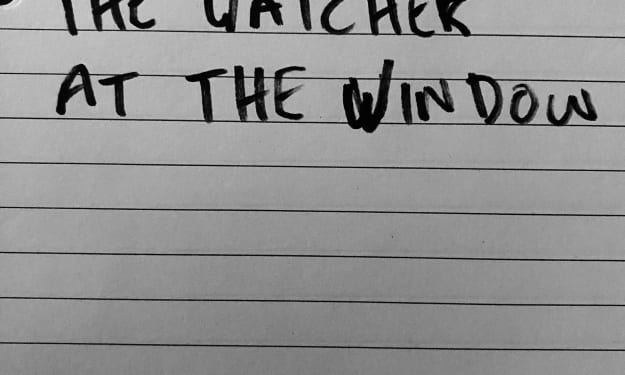 THE WATCHER
AT THE WINDOW